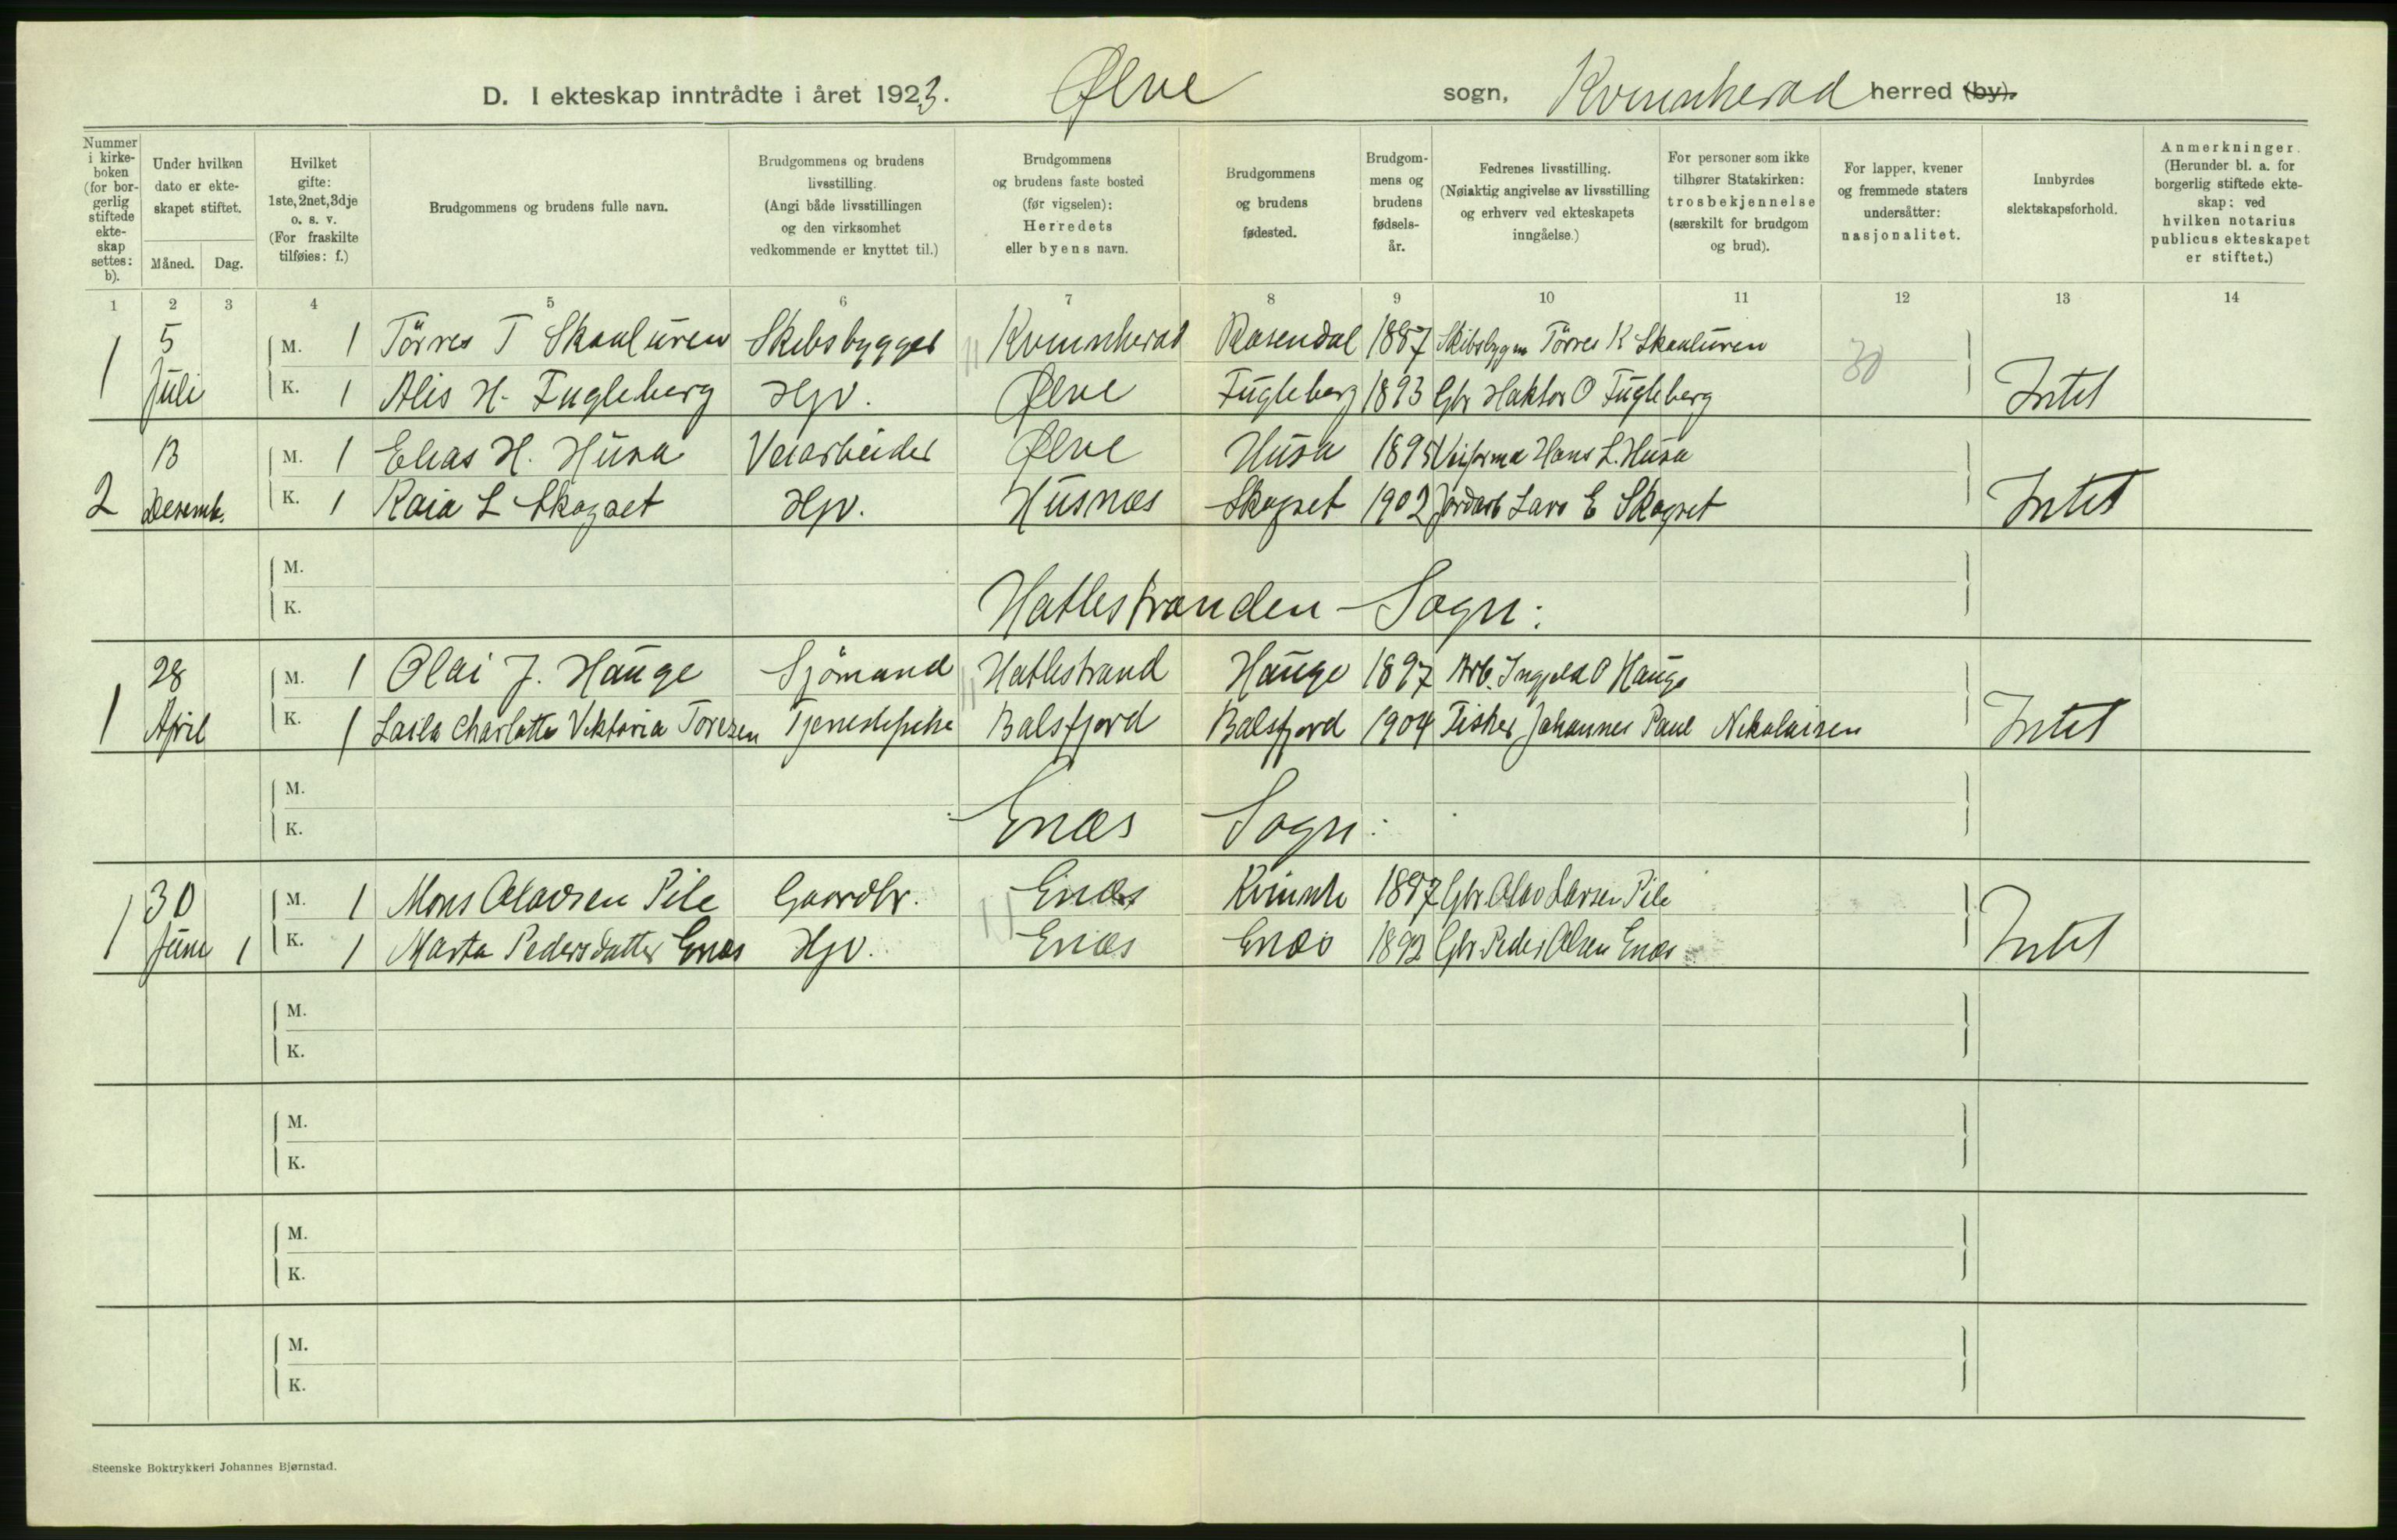 D. I ekteskap inntrådte i året 1923. Ølve sogn, Kvinnherad herred (by).
Nummer i kirke-boken (for bor-gerlig stiftede ekte-skap settes: b).
Under hvilken dato er ekte-skapet stiftet.
Måned. Dag.
Hvilket gifte: 1ste, 2net, 3dje o. s. v. (For fraskilte tilføies: f.)
Brudgommens og brudens fulle navn.
Brudgommens og brudens livsstilling. (Angi både livsstillingen og den virksomhet vedkommende er knyttet til.)
Brudgommens og brudens faste bosted (før vigselen): Herredets eller byens navn.
Brudgommens og brudens fødested.
Brudgom-mens og brudens fødsels-år.
Fedrenes livsstilling. (Nøiaktig angivelse av livsstilling og erhverv ved ekteskapets inngåelse.)
For personer som ikke tilhører Statskirken: trosbekjennelse (særskilt for brudgom og brud).
For lapper, kvener og fremmede staters undersåtter: nasjonalitet.
Innbyrdes slektskapsforhold.
Anmerkninger. (Herunder bl. a. for borgerlig stiftede ekte-skap: ved hvilken notarius publicus ekteskapet er stiftet.)
1 2 3 4 5 6 7 8 9 10 11 12 13 14
1 5 M. 1 Törres T Skaaluren Skibsbygger Kvinnherad Rosendal 1887 Skibsbygm Törres K Skaaluren 30
Juli K. 1 Alis H. Fugleberg Hjv. Ølve Fugleberg 1893 Gbr Haktor O Fugleberg Intet
2 13 M. 1 Elias H. Husa Veiarbeider Ølve Husa 1895 Veiforma Hans L. Husa
Desemb. K. 1 Kaia L Skogset Hjv. Husnæs Skogset 1902 Jordarb Lars E Skogset Intet
M.
K. Hatlestranden Sogn:
1 28 M. 1 Olai J. Hauge Sjömand Hatlestrand Hauge 1897 Arb. Ingjeld O Hauge
April K. 1 Laila Charlotte Viktoria Toresen Tjenestepike Balsfjord Balsfjord 1904 Fisker Johannes Paul Nikolaisen Intet
M.
K. Enæs Sogn:
1 30 M. 1 Mons Olavsen Pile Gaardbr. Enæs Kvinnh 1887 Gbr. Olav Larsen Pile
Juni 1 K. 1 Marta Pedersdatter Enæs Hjv. Enæs Enæs 1892 Gbr. Peder Olsen Enæs Intet
M.
K.
M.
K.
M.
K.
M.
K.
Steenske Boktrykkeri Johannes Bjørnstad.